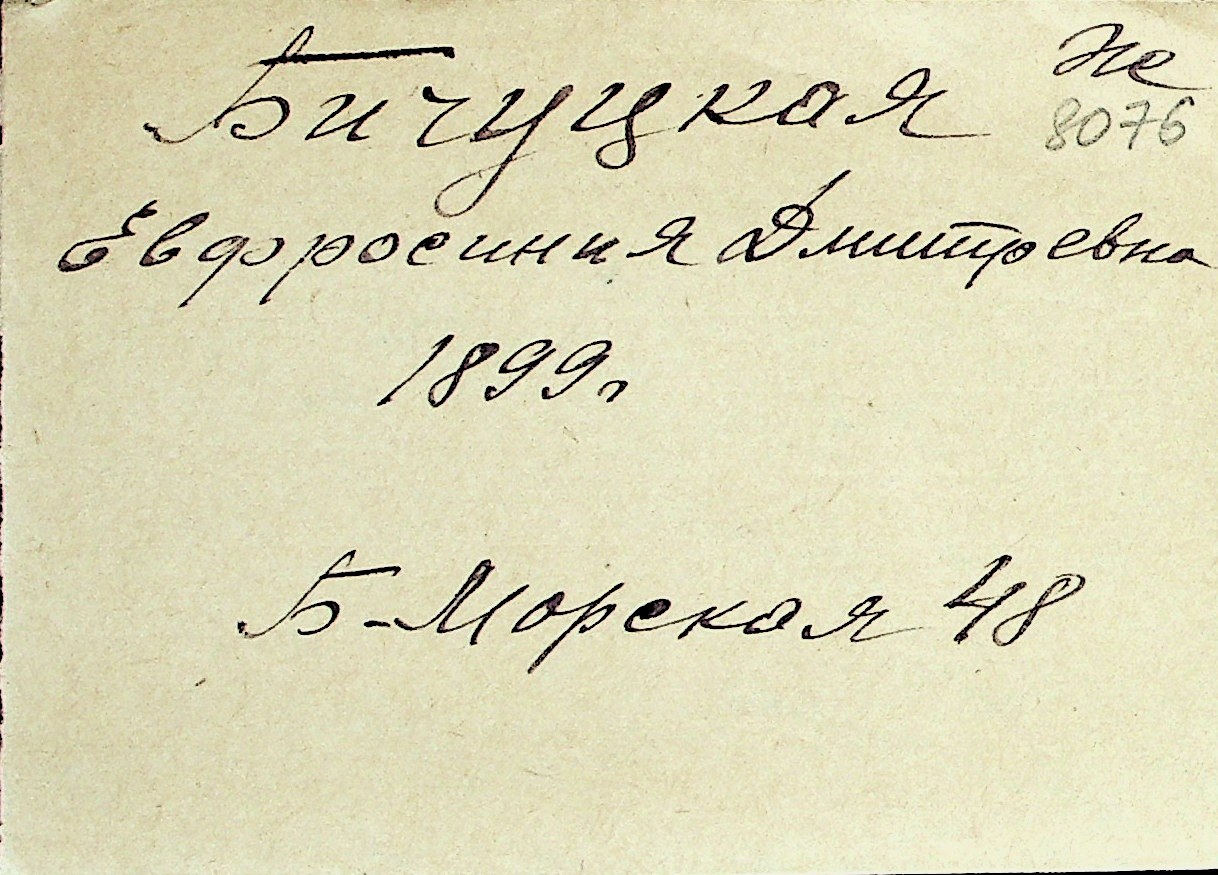 Бичуцкая Не
8076
Евфросиния Дмитревна
1899г
Б-Морская 48